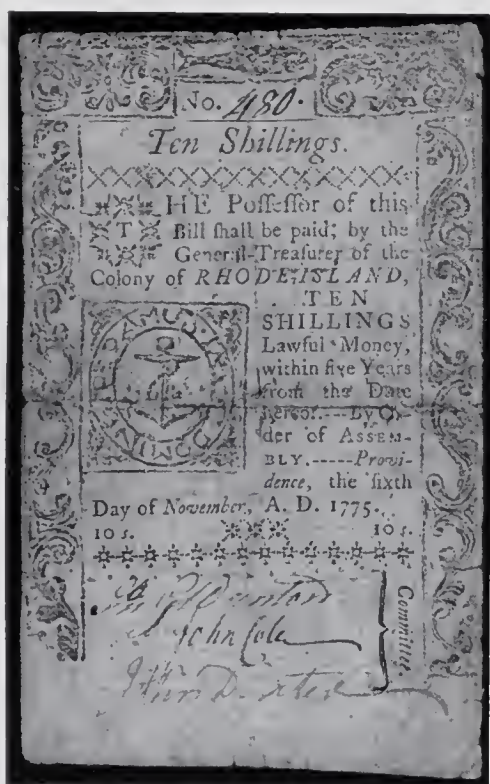 No. 480.
Ten Shillings.
THE Poſſeſſor of this
Bill ſhall be paid; by the
General-Treaſurer of the
Colony of RHODE-ISLAND,
TEN
SHILLINGS
Lawful Money,
within five Years
from the Date
hereof.----By Or-
der of ASSEM-
BLY.-----Provi-
dence, the ſixth
Day of November, A. D. 1775.
10 s. 10 s.
John Cole
Committee.